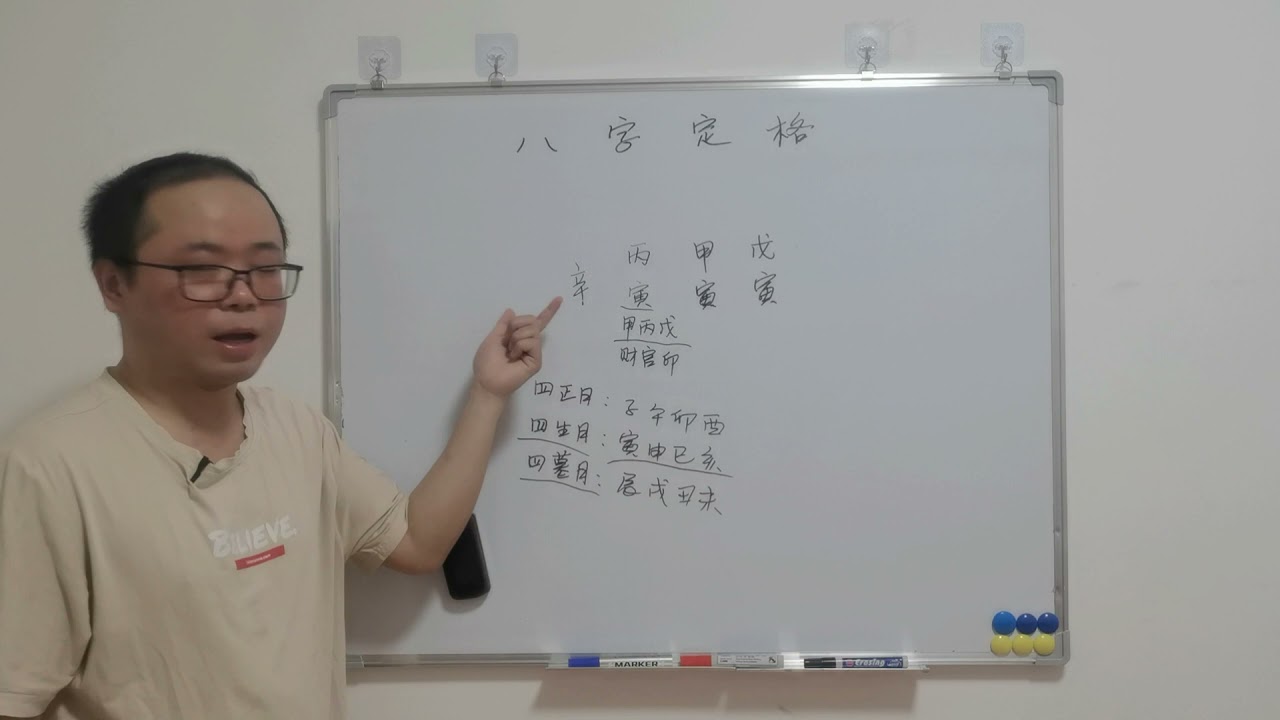 八字定格
丙甲戊
辛
寅寅寅
甲丙戊
财官卯
四正月：子午卯酉
四生月：寅申巳亥
四墓月：辰戌丑未
BELIEVE.
MARKER
Erasing